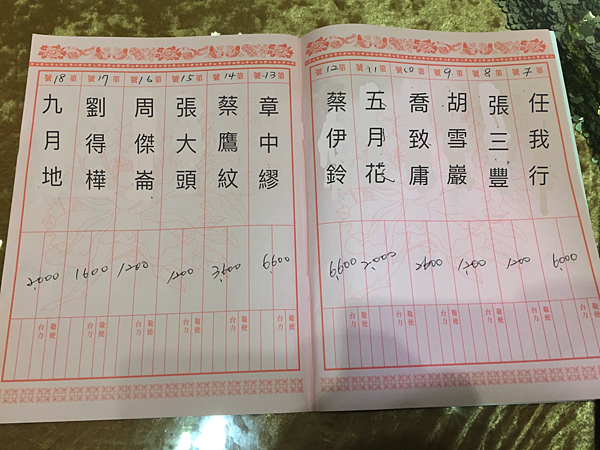 第7號
任我行
6000
敬使
台力
第8號
張三豐
1200
敬使
台力
第9號
胡雪巖
1200
敬使
台力
第10號
喬致庸
2600
敬使
台力
第11號
五月花
2000
敬使
台力
第12號
蔡伊鈴
6600
敬使
台力
第13號
章中繆
6600
敬使
台力
第14號
蔡鷹紋
3600
敬使
台力
第15號
張大頭
1200
敬使
台力
第16號
周傑崙
1200
敬使
台力
第17號
劉得樺
1600
敬使
台力
第18號
九月地
2000
敬使
台力